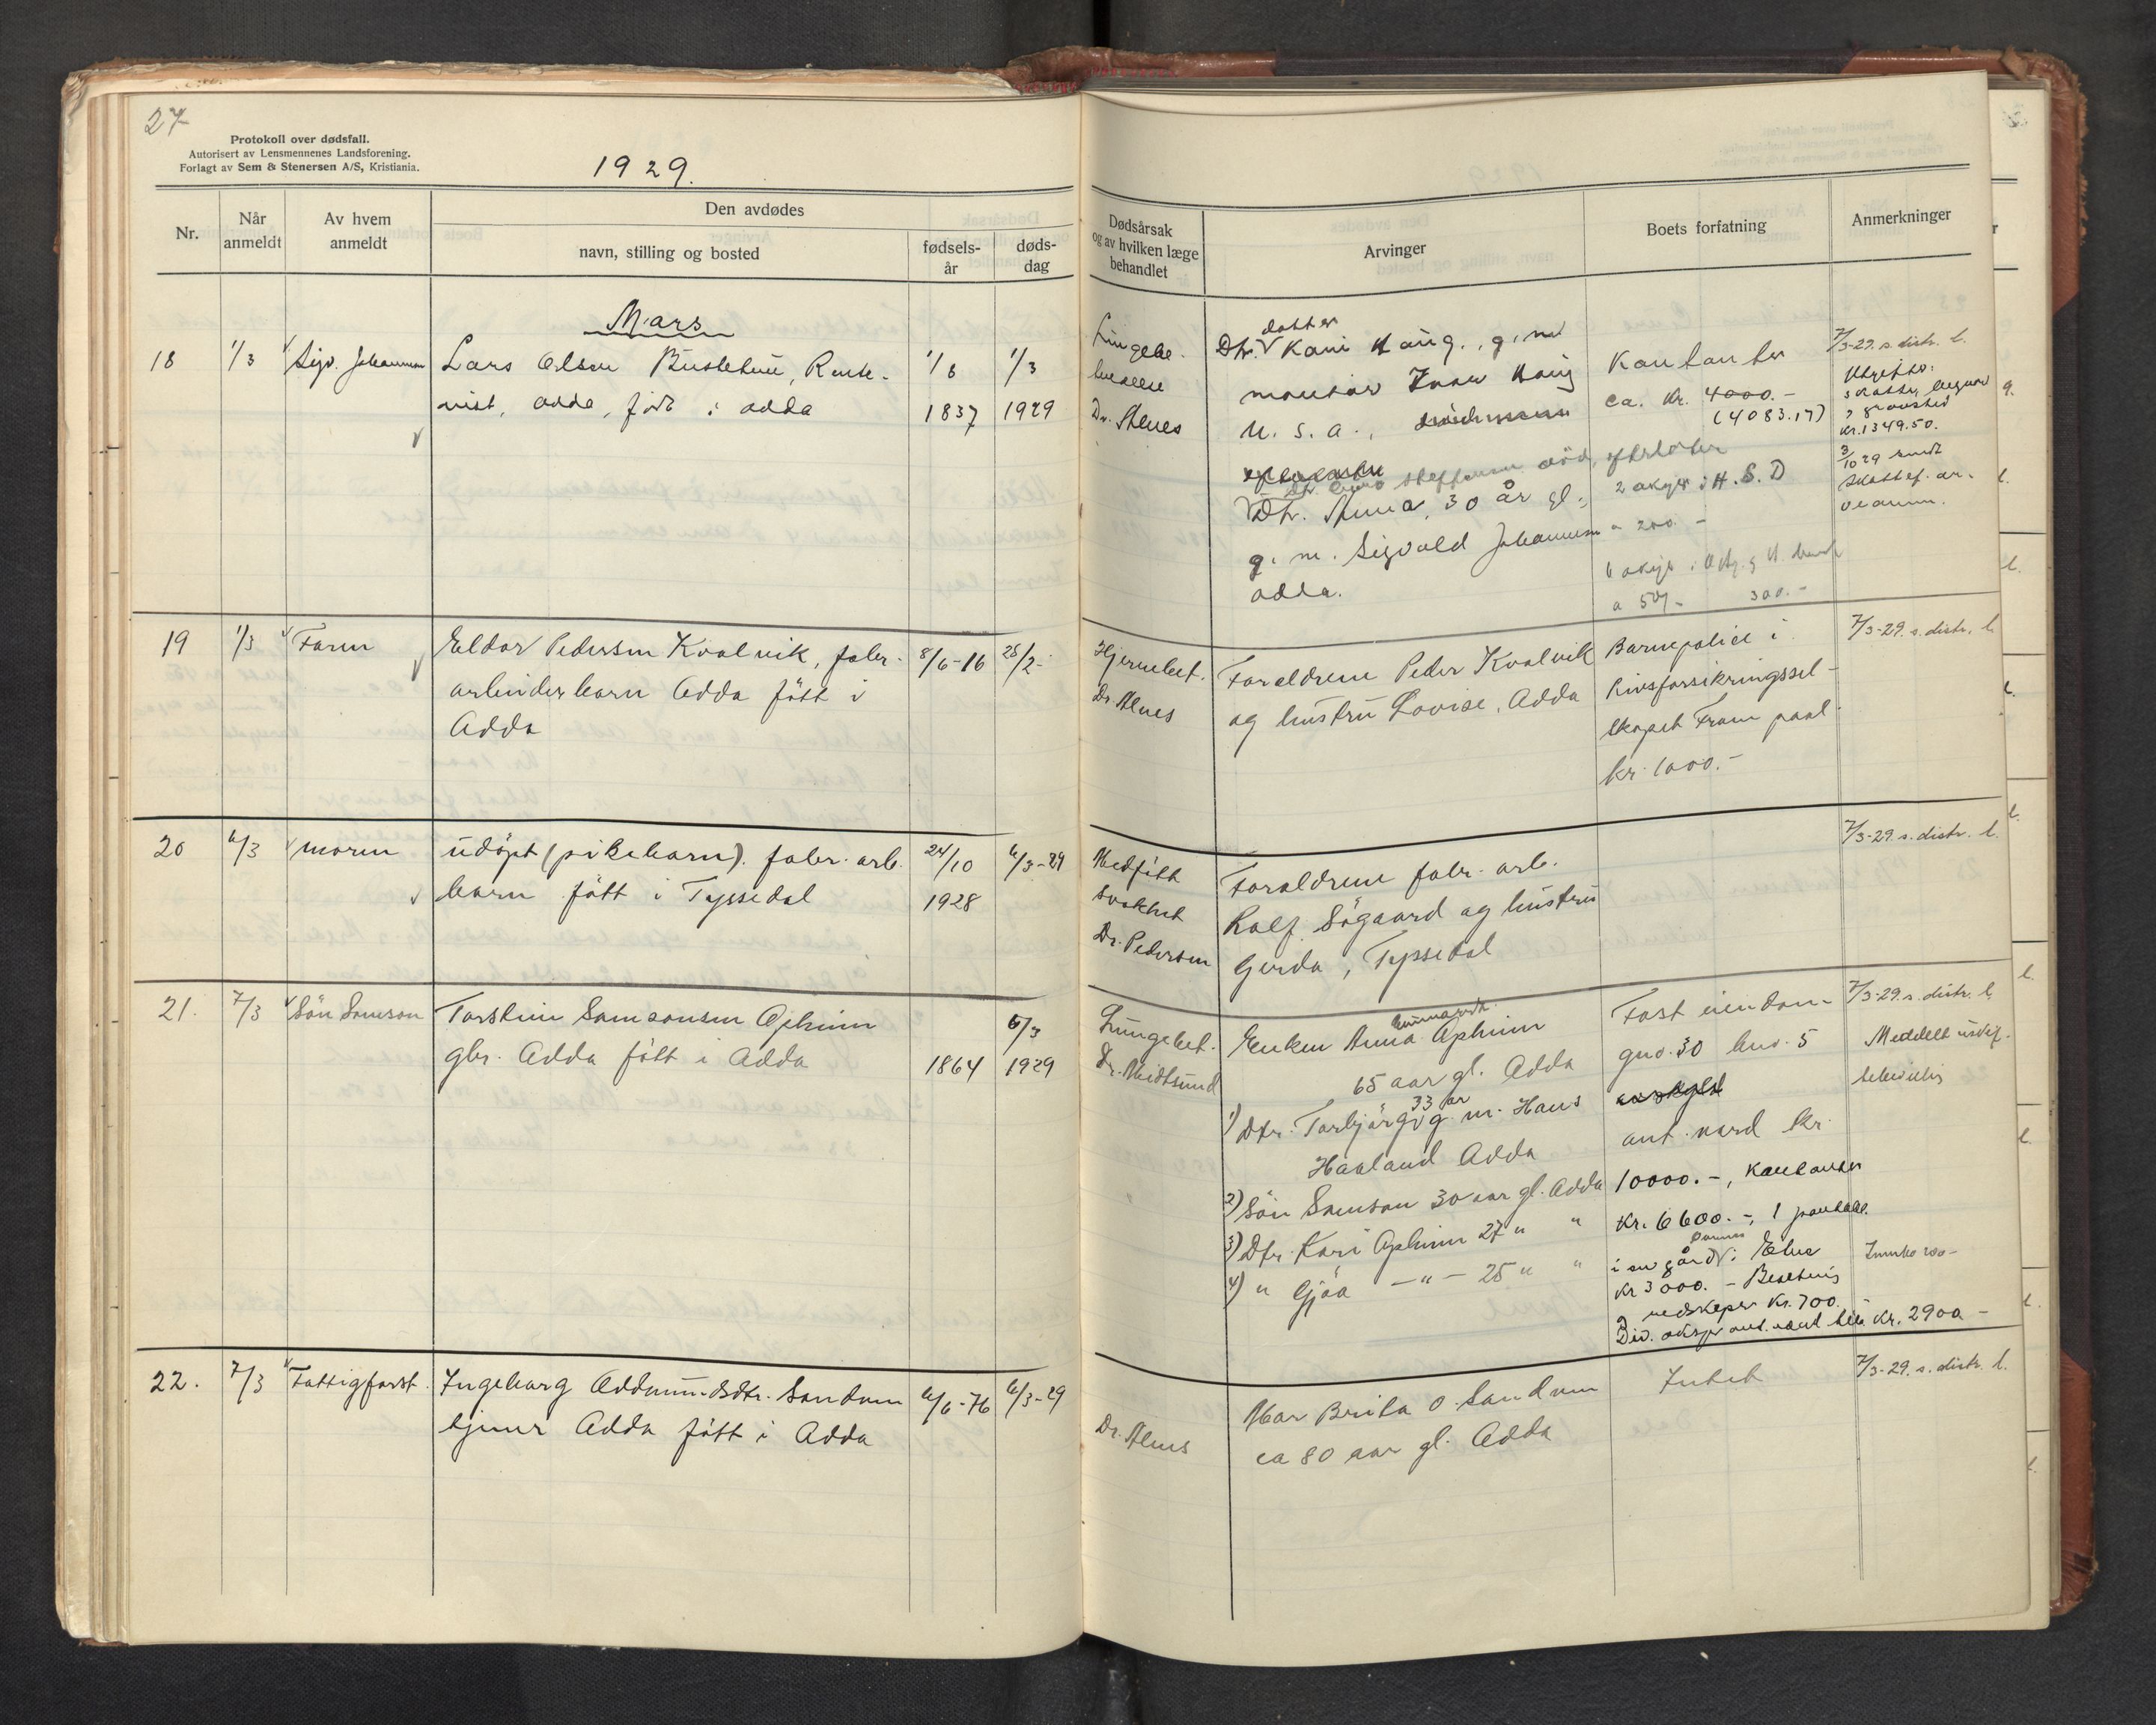 27
Protokoll over dødsfall.
Autorisert av Lensmennenes Landsforening.
Forlagt av Sem & Stenersen A/S, Kristiania.
1929.
Nr.
Når anmeldt
Av hvem anmeldt
Den avdødes
navn, stilling og bosted
fødsels-
år
døds-
dag
Dødsårsak
og av hvilken læge
behandlet
Arvinger
Boets forfatning
Anmerkninger
Mars
18
1/3
Sigv. Johannesen
Lars Olsen
Odda, født i Odda
1837
1/3
1929
datter
g. m.
U. S. A.,
30 år gl.,
g. m. Sigvald Johannesen
Odda.
Kontanter
ca. kr. 4000.-
(4083.17)
2 aksjer i H. S. D
a 200 -
a 50,- 300.-
7/3-29. s. distr. l.
kr. 1349.50.
19
1/3
Faren
Eldar Pedersen Kvalvik, fabr.
arbeiderbarn Odda født i
Odda
8/6-16
28/2-
Hjernebet.
Foreldrene Peder Kvalvik
og hustru Lovise, Odda
Barnepolice i
livsforsikringssel-
skapet Fram paal.
kr. 1000.-
7/3-29. s. distr. l.
20
6/3
moren
udöpt (pikebarn). fabr. arb.
barn født i Tyssedal
24/10
1928
6/3-29
Medfødt
svakhet
Dr. Pedersen
Foreldrene fabr. arb.
Rolf Sögaard og hustru
Gerda, Tyssedal
7/3-29. s. distr. l.
21.
7/3
Sön Samson
Torstein Samsonsen Opheim
gbr. Odda født i Odda
1864
6/3
1929
Lungebet.
Dr. Midtsund
Enken Anna Opheim
65 aar gl. Odda
1) Dtr. Torbjörg g. m. Hans
33 år
Haaland Odda
2) Sön Samson 30 aar gl. Odda
3) Dtr. Kari Opheim 27 " "
4) " Gjöa -"- 25 " "
Fast eiendom
gno. 30 bno. 5
ant. verd kr.
10000.-, Kontanter
kr. 6600.-, 1 panteobl.
kr 3000. - Besetning
redskaper kr. 700.
Div. aksjer ant. verd kr. 2900 -
7/3-29. s. distr. l.
Meddelt uskif-
tebevilling
22.
7/3
Fattigforst.
Ingeborg Oddmundsdtr. Sandven
tjener Odda født i Odda
6/6-76
6/3-29
Mor Brita O. Sandven
ca 80 aar gl. Odda
Intet
7/3-29. s. distr. l.